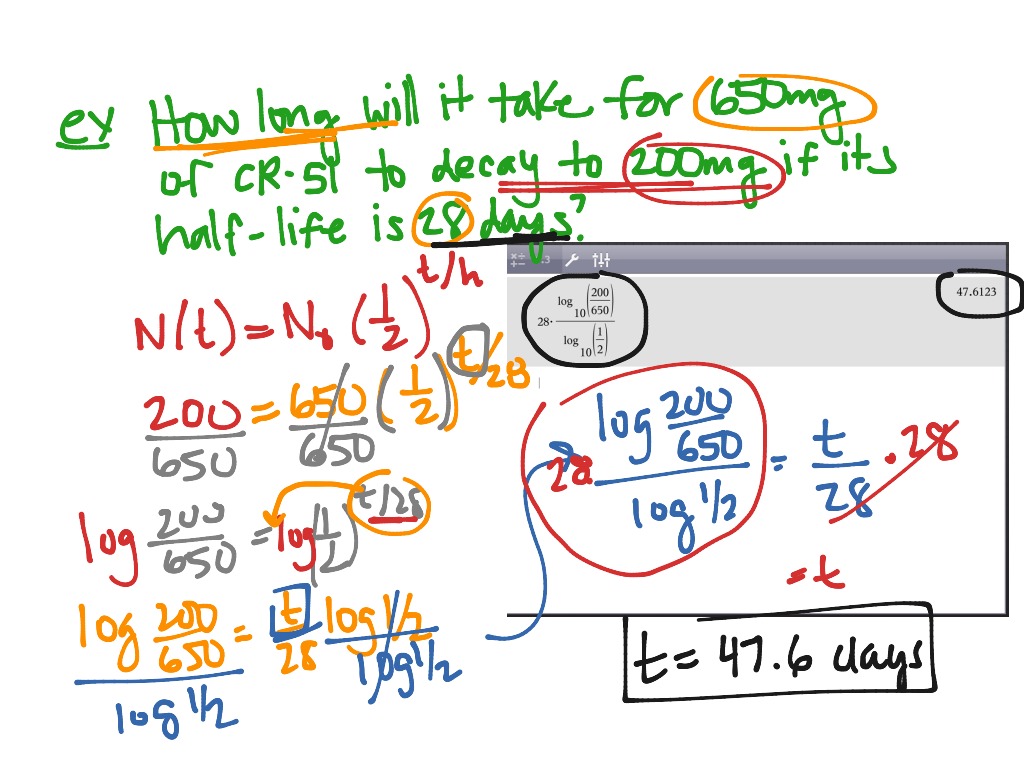 ex How long will it take for 650mg
of CR-51 to decay to 200mg if its
half-life is 28 days?
N(t) = N₀ (1/2)^t/h
200/650 = 650/650 (1/2)^t/28
log 200/650 = log(1/2)^t/28
log 200/650 / log 1/2 = t/28 log 1/2 / log 1/2
28· log₁₀(200/650) / log₁₀(1/2)
47.6123
28 log 200/650 / log 1/2 = t/28 · 28
= t
t = 47.6 days